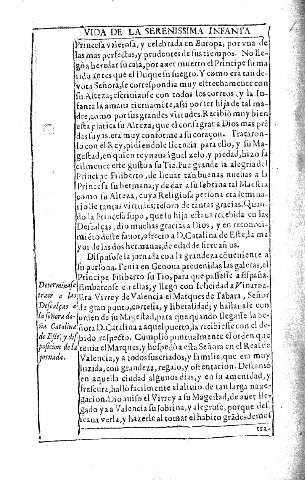 VIDA DE LA SERENISSIMA INFANTA
Princesa valerosa, y celebrada en Europa, por vna de
las mas perfectas, y prudentes de sus tiempos. No lle-
gò a heredar su casa, por auer muerto el Principe su ma
rido antes que el Duque su suegro. Y como era tan de-
vota Señora, se correspondia muy estrechamente con
su Alteza; escriuiase con todos los correos, y la In-
fanta la amaua tiernamente, assi por ser hija de tal ma-
dre, como por sus grandes virtudes. Recibiò muy bien
esta platica su Alteza, que el consagrar a Dios mas pren
das suyas, era muy conforme a su coraçon. Trataron-
la con el Rey, pidiendole licencia para ello, y su Ma-
gestad, en quien reynaua igual zelo, y piedad, hizo fa
cilmente este gusto a su Tia. Fue grande la alegria del
Principe Filiberto, de lleuar tan buenas nueuas a la
Princesa su hermana, y de dar a su sobrina tal Maestra
como su Alteza, cuya Religiosa persona era Semina-
rio de tantas virtudes, y tesoro de tantas gracias. Quan-
do la Princesa supo, que su hija estaua recebida en las
Descalças, dio muchas gracias a Dios, y en reconoci-
miēto deste fauor, ofrecio a D. Catalina de Este, la ma
yor de las dos hermanas, de edad de siete años.
Dispusose la jornada con la grandeza conueniente a
su persona. Tenia en Genoua preuenidas las galeras, el
Principe Filiberto su Tio, para que passasse a España.
Embarcose en ellas, y llegò con felicidad a Vinaroz.
Era Virrey de Valencia el Marques de Tabara, Señor
de gran punto, cortesia, y liberalidad; y hallauase con
orden de su Magestad, para que quando llegasse la se-
ñora D. Catalina a aquel puerto, la recibiesse con el de-
bido respeto. Cumpliò puntualmente el orden que
tenia el Marques, y hospedò a esta Señora en el Real de
Valencia, y a todos sus criados, y familia, que era muy
luzida, con grandeza, regalo, y ostentacion. Descansò
en aquella ciudad algunos dias, y en su amenidad, y
frescura, hallò facilmente el aliuio de tan larga naue-
gacion. Dio auiso el Virrey a su Magestad, de auer lle-
gado ya a Valencia su sobrina, y alegrose, porque des-
seaua verla, y hazerle al tomar el habito grādes demos
tra-
Descalças a
la señora do-
ña Catalina
de Este, y dis
posicion de la
jornada.